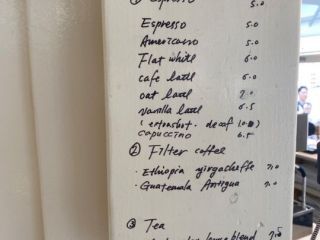 ① Espresso 5.0
Espresso 5.0
Americano 5.0
Flat white 6.0
cafe latte 6.0
oat latte 7.0
vanilla latte 6.5
(extra shot. decaf
cappuccino 6.5
② Filter coffee
· Ethiopia yirgacheffe 7.0
· Guatemala Antigua 7.0
③ Tea
blend 7.5